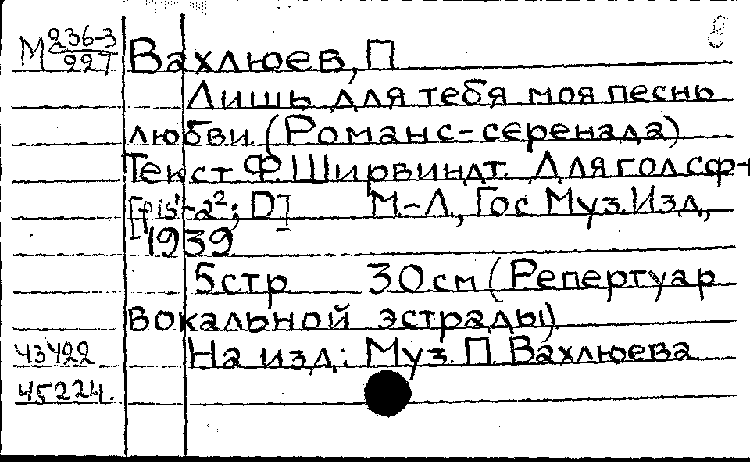 М 236-3/227
8
Вахлюев, П
Лишь для тебя моя песнь
любви (Романс-серенада)
Текст Ф. Ширвиндт. Для гол с ф-п
[fis¹-a²; D] М.-Л., Гос Муз. Изд,
1939
5 стр 30 см (Репертуар
вокальной эстрады)
43422 На изд: Муз. П Вахлюева
45224.